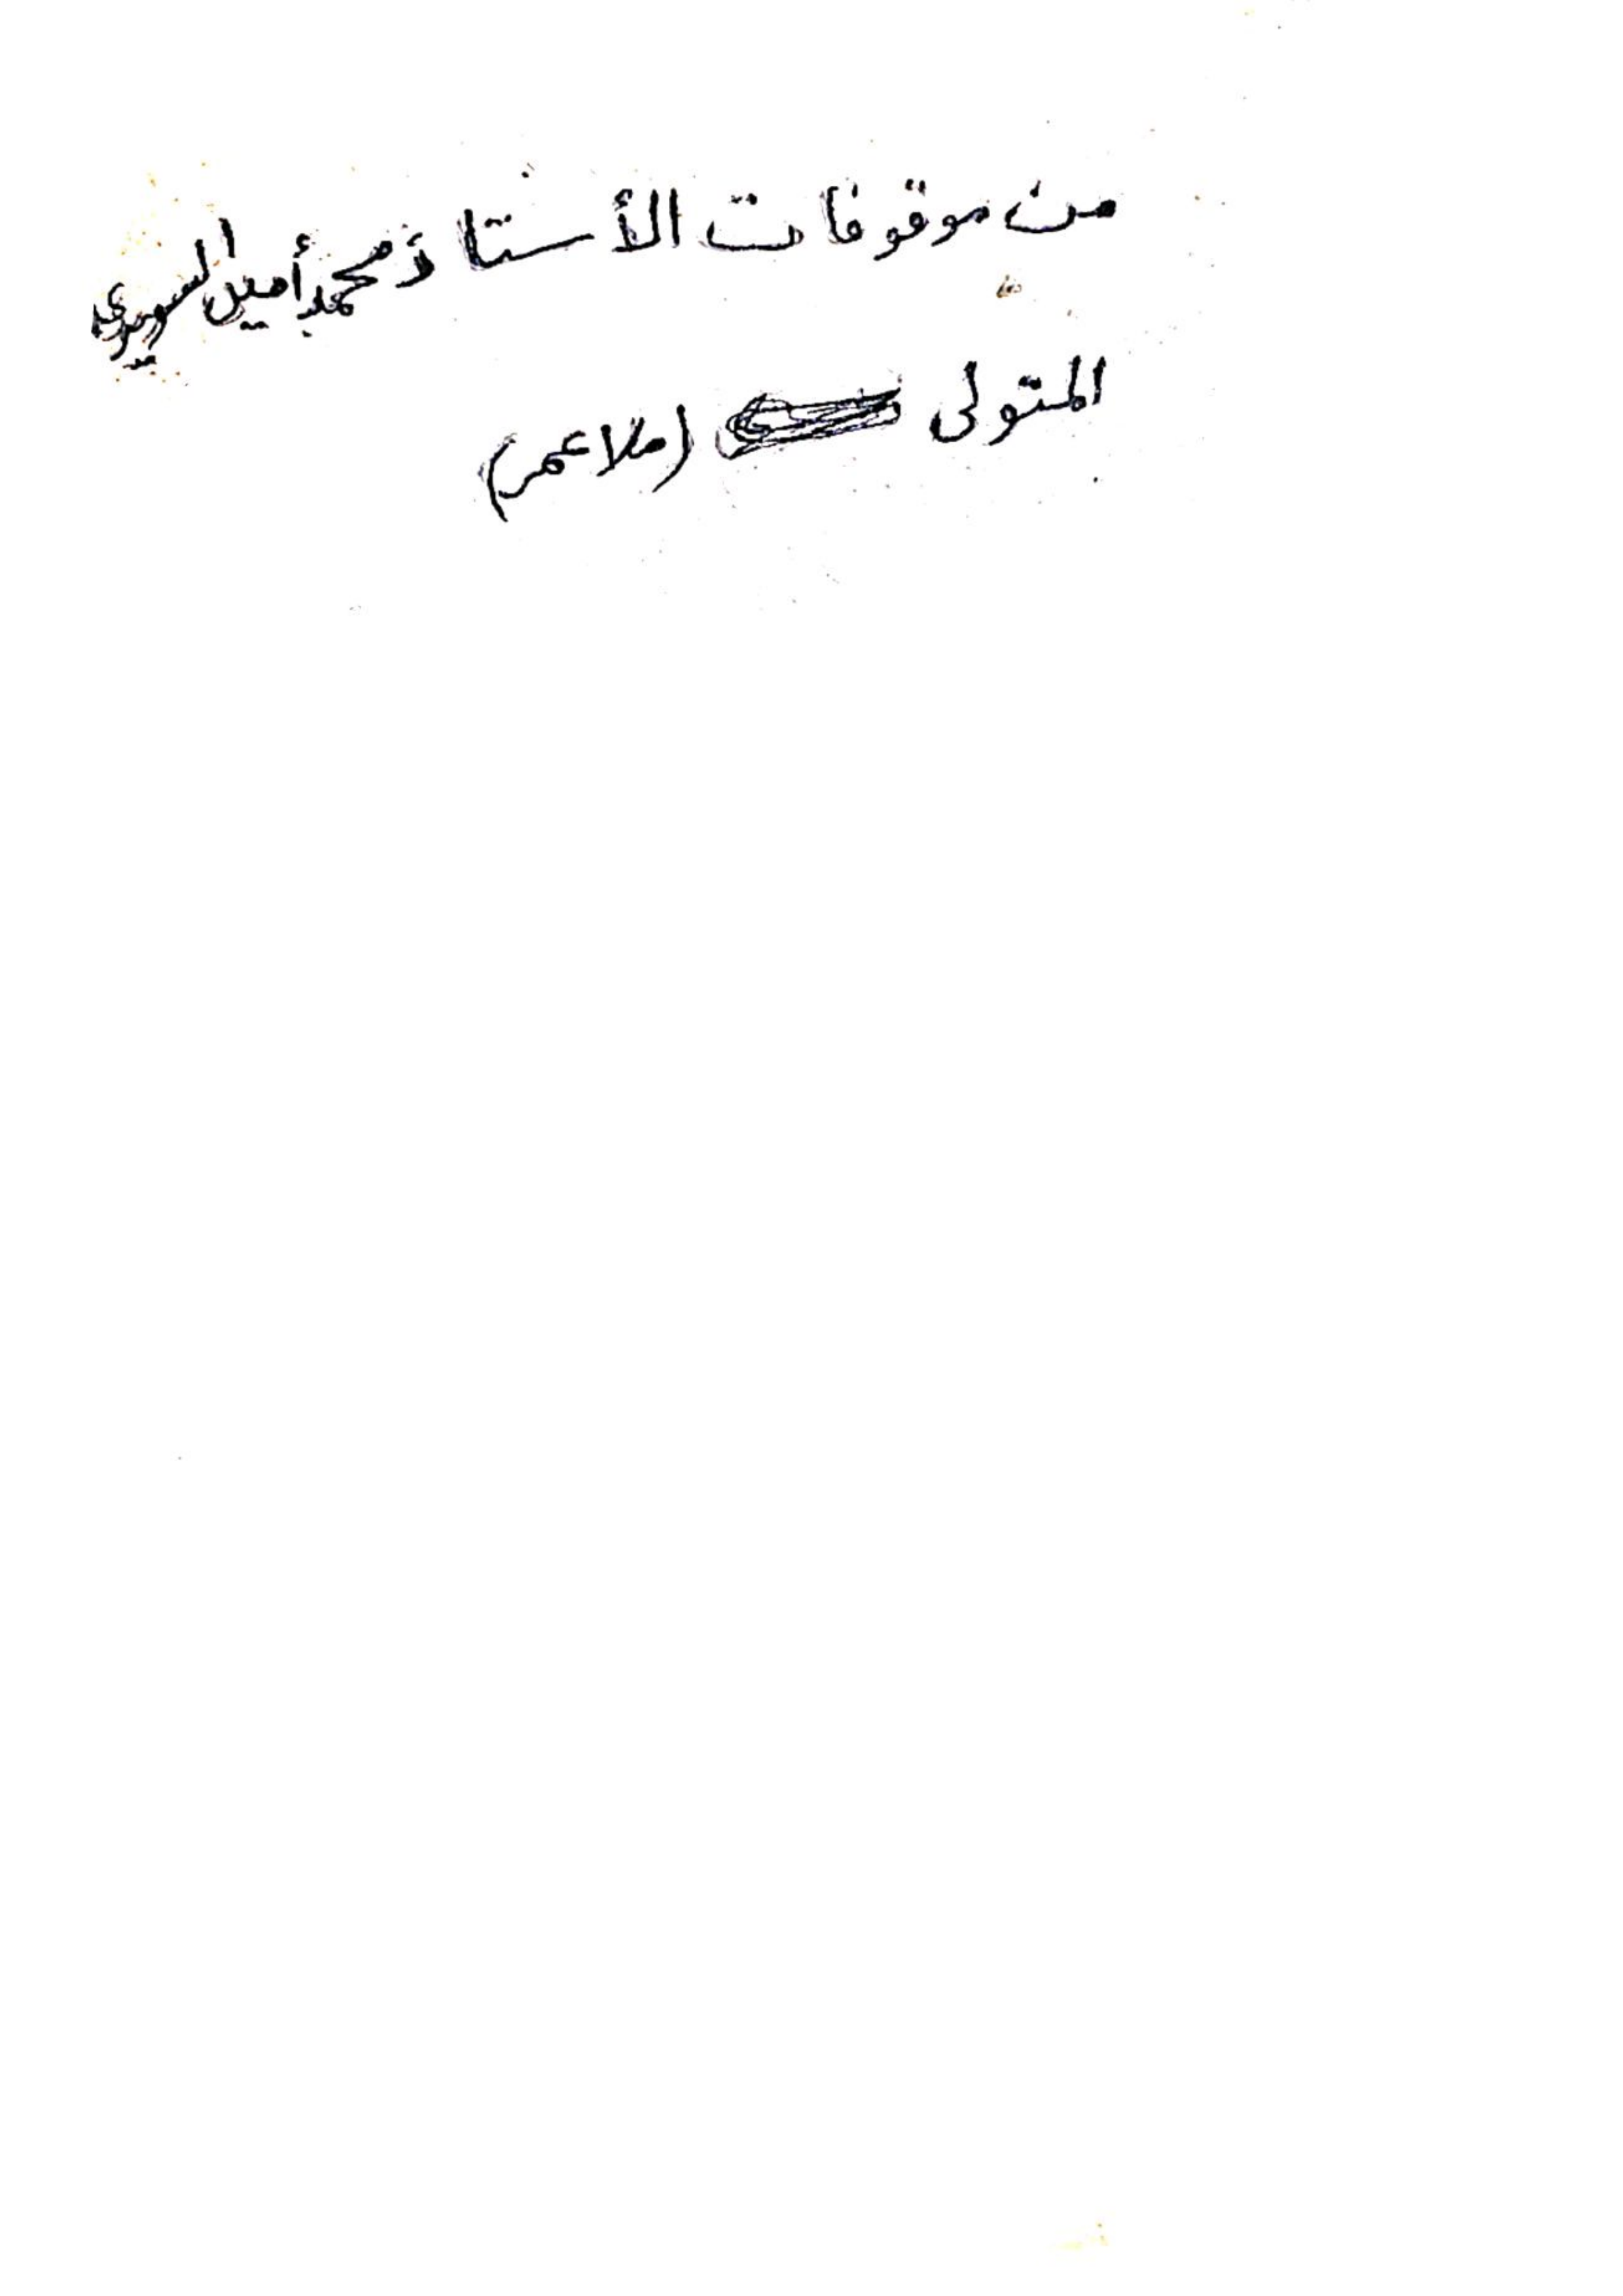 من موقوفات الأستاذ محمد أمين
المتولى (ملا عمر)